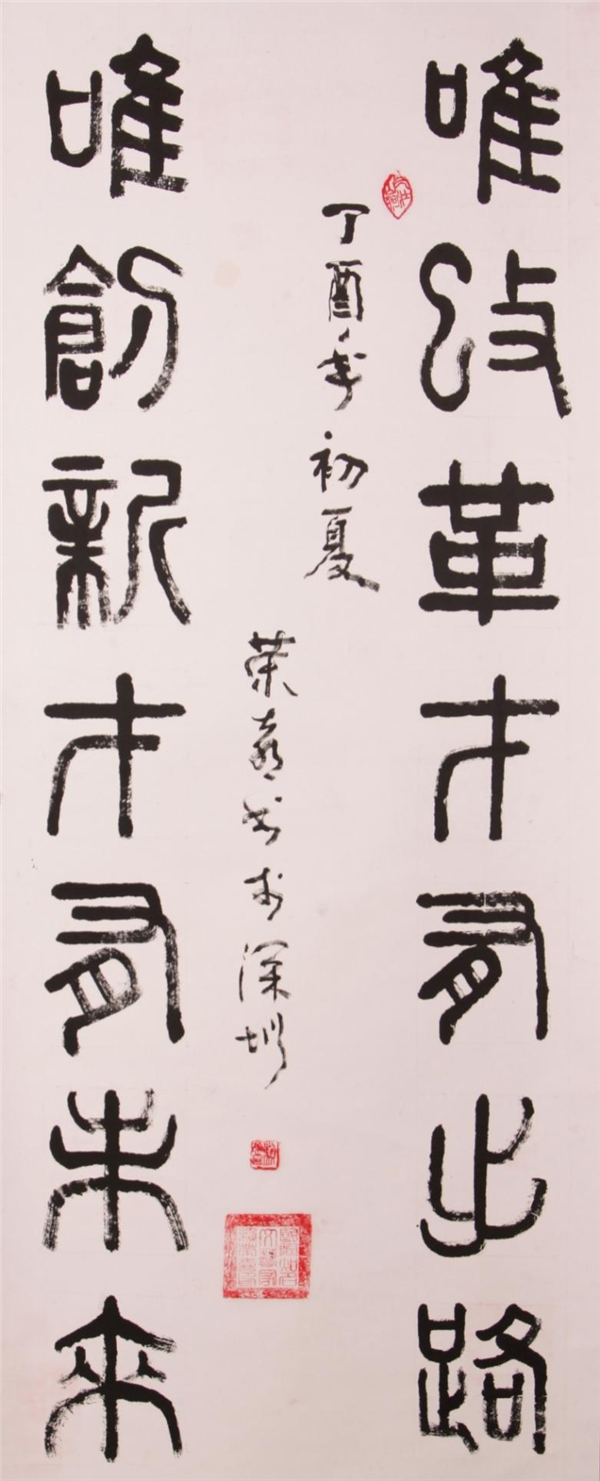 唯改革才有出路
丁酉年初夏
荣喜书于深圳
唯創新才有未來